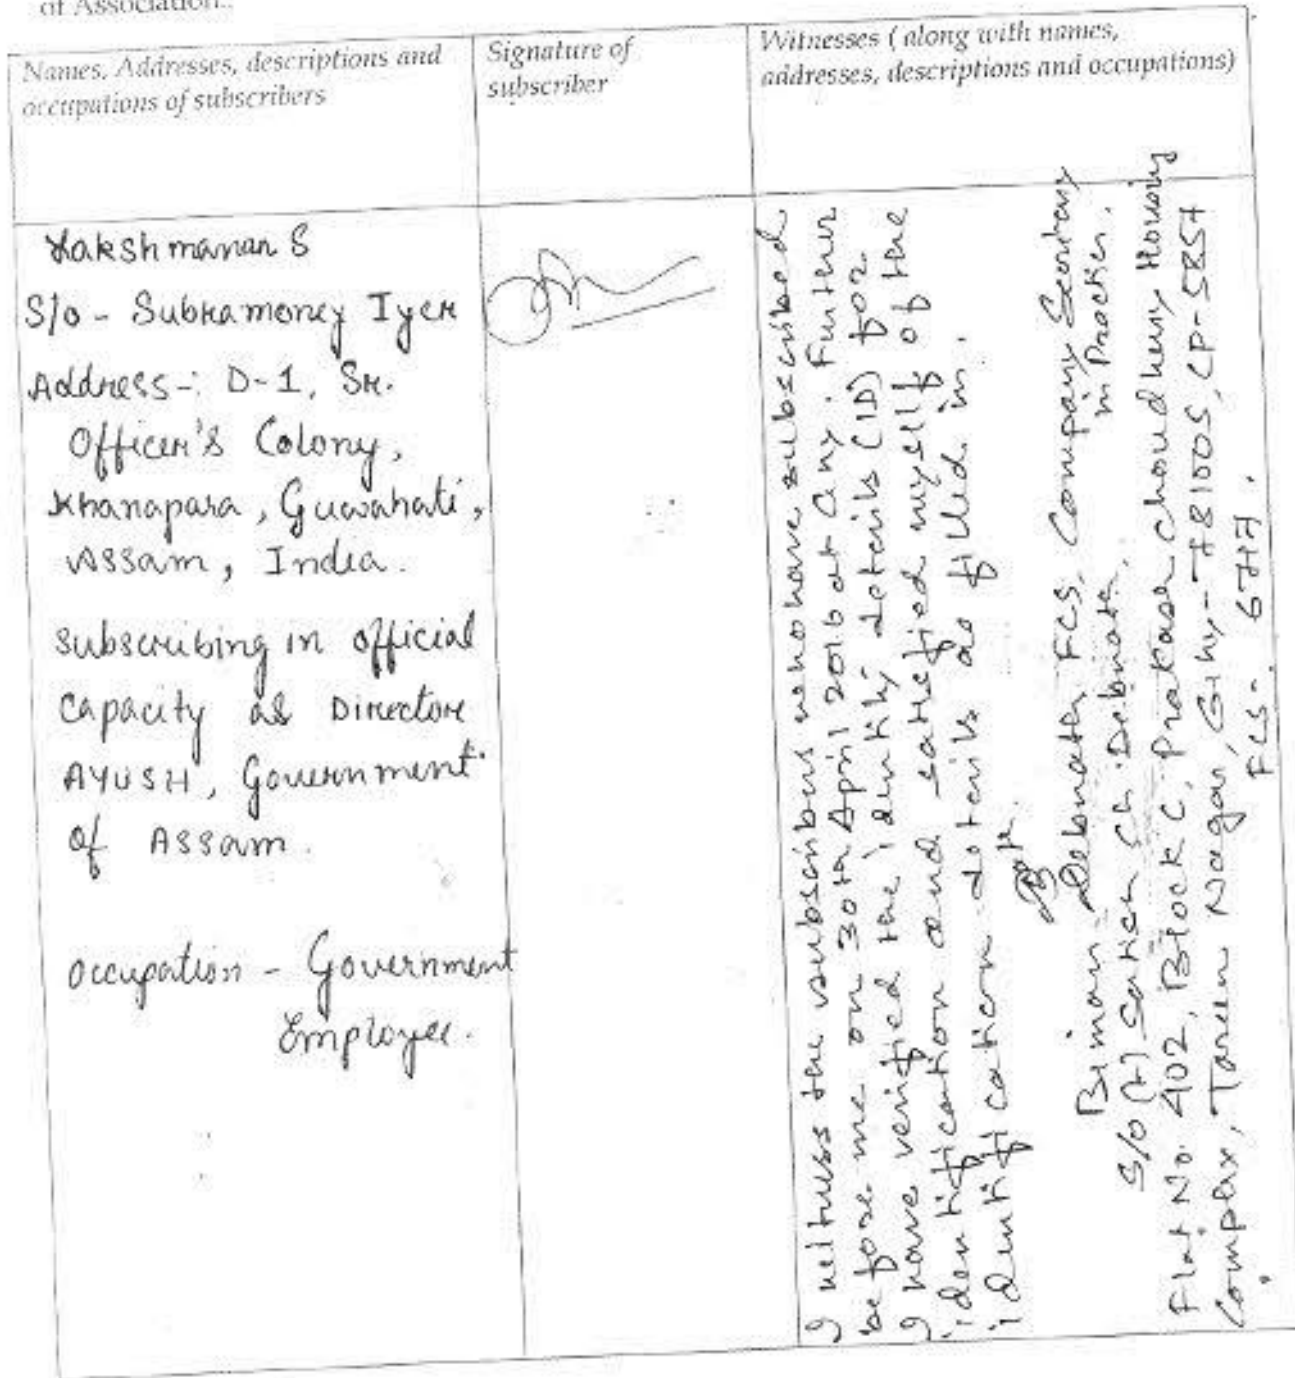 of Association..
Names, Addresses, descriptions and
occupations of subscribers
Signature of
subscriber
Witnesses ( along with names,
addresses, descriptions and occupations)
Lakshmanan S
S/o - Subramoney Iyer
Address-: D-1, Sr.
Officer's Colony,
Khanapara, Guwahati,
Assam, India.
Subscribing in official
capacity as Director
AYUSH, Government
of Assam.
Occupation - Government
Employee.
I witness the subscribers who have subscribed
before me on 30th April 2016 at Ghy. Further
I have verified the identity details (ID) for
identification and satisfied myself of the
identification details as filled in.
Biman Debnath, FCS, Company Secretary
in Practice.
S/o (L) Satish Ch. Debnath,
Flat No. 402, Block C, Prakash Choudhury Housing
Complex, Tarun Nagar, Ghy-781005, CP-5857
FCS-. 6717.